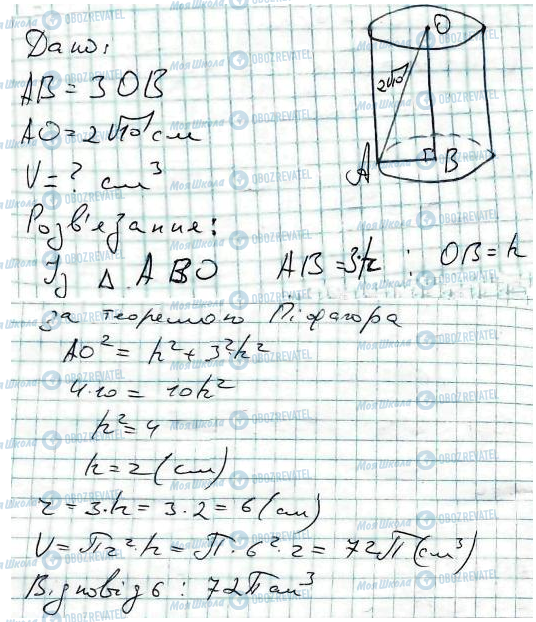 Дано:
AB = 3 OB
AO = 2√10 см
V = ? см³
Розв'язання:
Із Δ ABO AB = 3·h ; OB = h
за теоремою Піфагора
AO² = h² + 3²·h²
4·10 = 10h²
h² = 4
h = 2 (см)
r = 3·h = 3·2 = 6 (см)
V = Пr²·h = П·6²·2 = 72П (см³)
Відповідь : 72П см³
O
2√10
A
B
Моя Школа
OBOZREVATEL